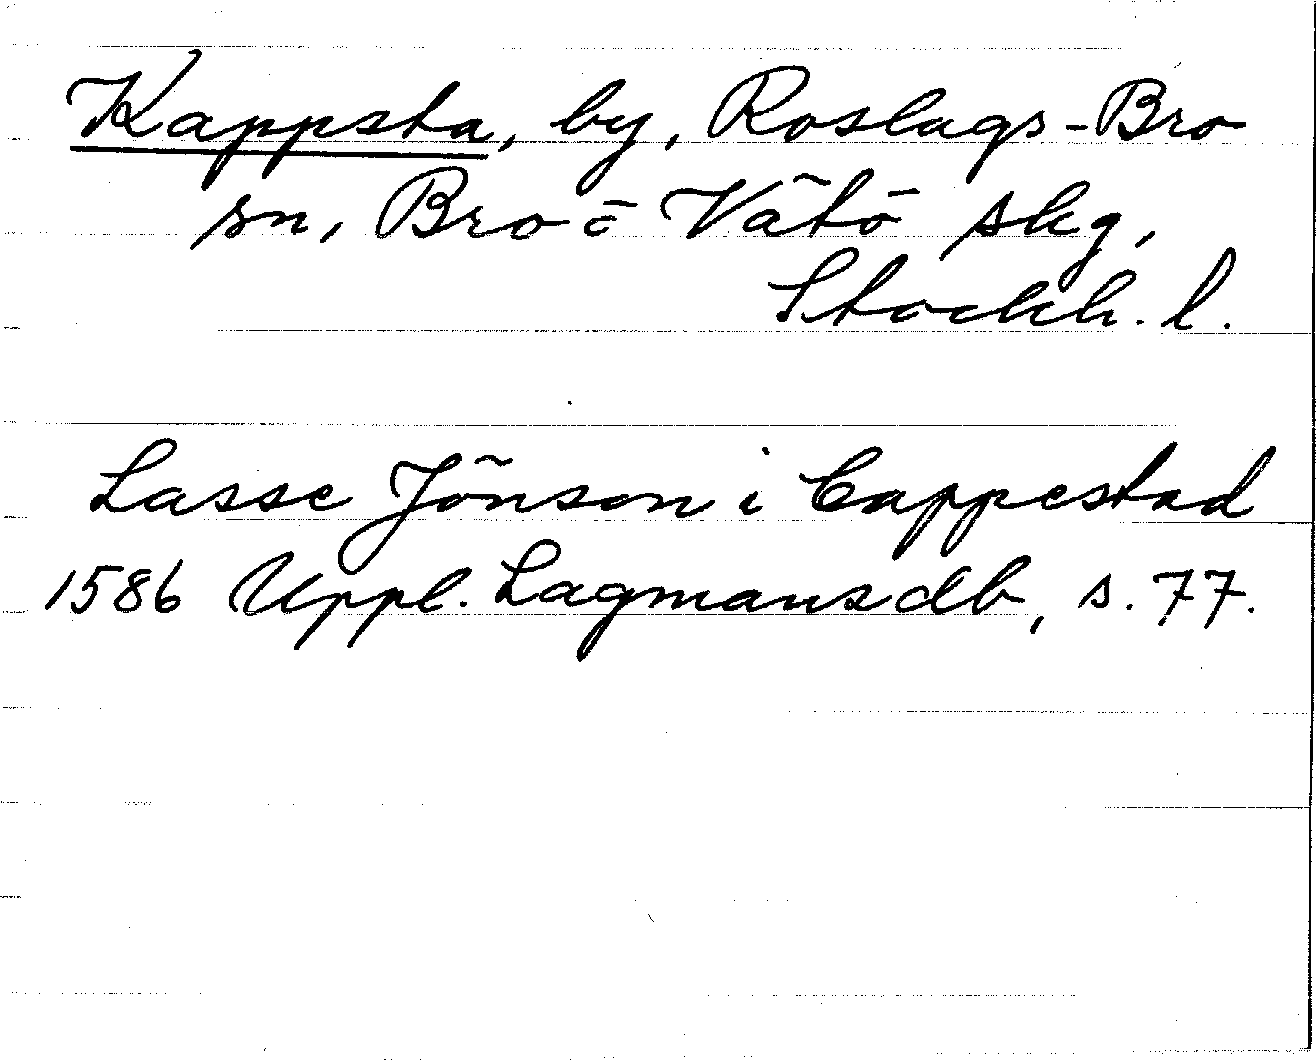 Kappsta, by, Roslags-Bro
sn, Bro o Vätö skg,
Stockh. l.
Lasse Jönson i Cappestad
1586 Uppl. Lagmansdb, s. 77.